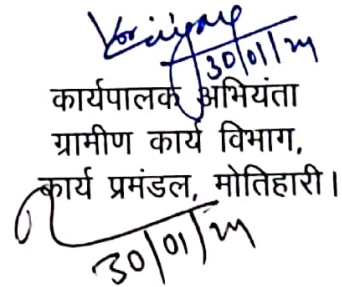 30/01/24
कार्यपालक अभियंता
ग्रामीण कार्य विभाग,
कार्य प्रमंडल, मोतिहारी।
30/01/24